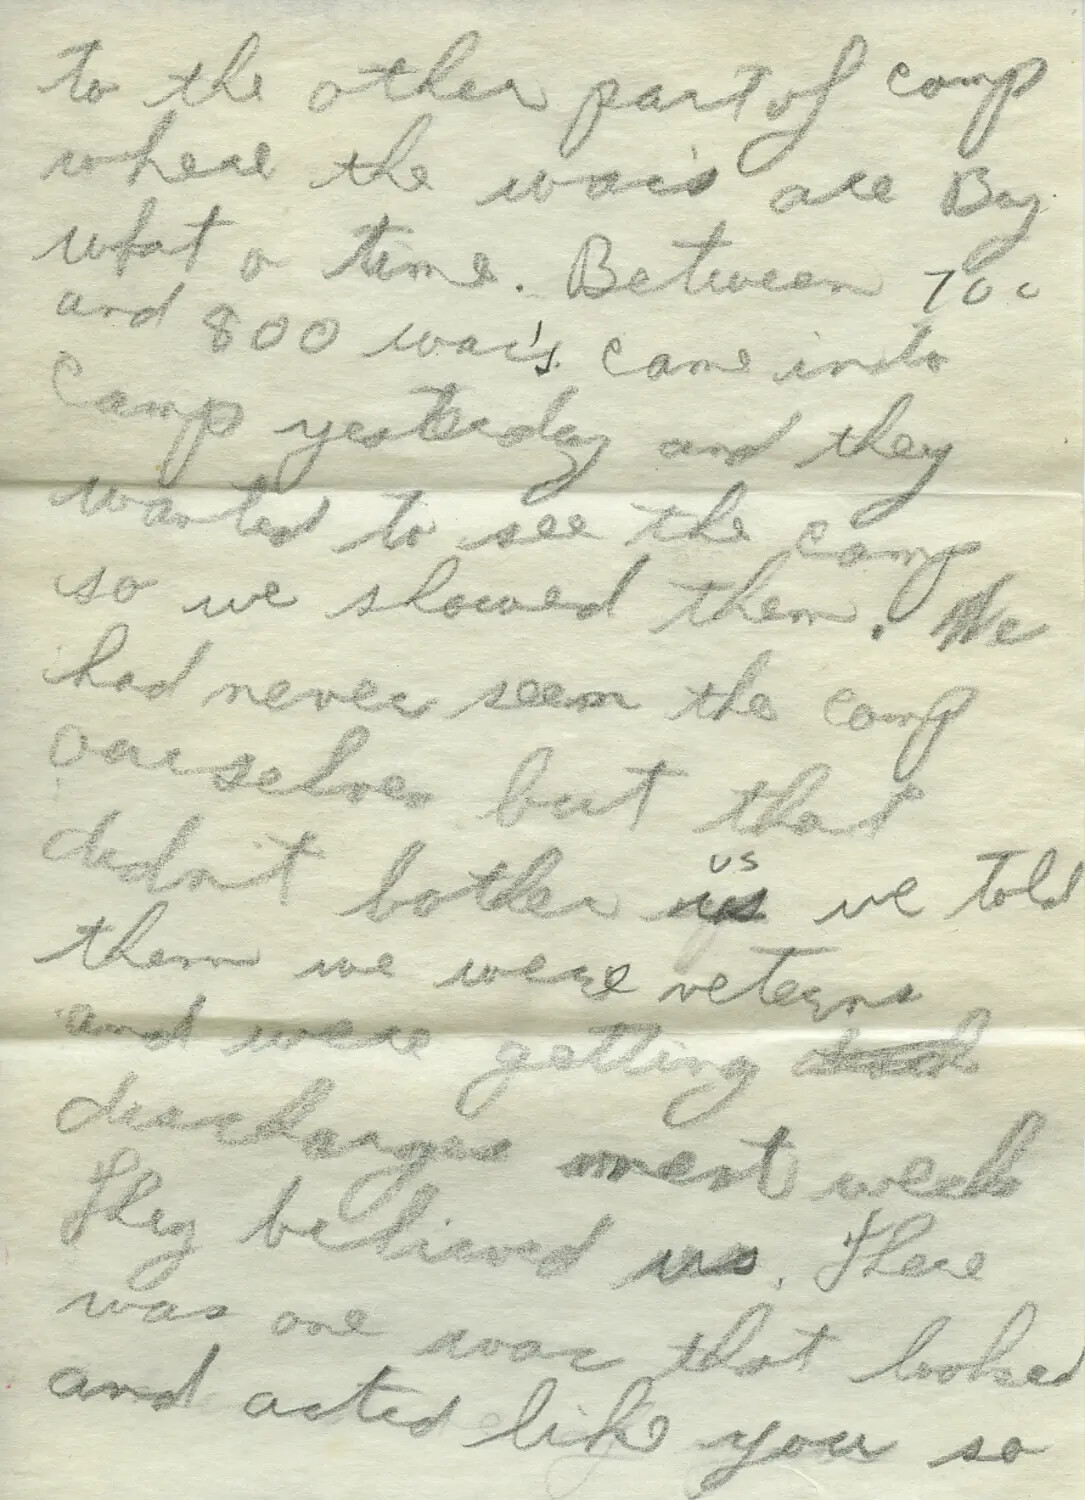 to the other part of camp
where the wac's are Boy
what a time. Between 700
and 800 wac's came into
Camp yesterday and they
wanted to see the camp
so we showed them. We
had never seem the camp
ourselves but that
didn't bother us we told
them we were veterns
and were getting
discharges next week
They believed us. There
was one wac that looked
and acted like you so